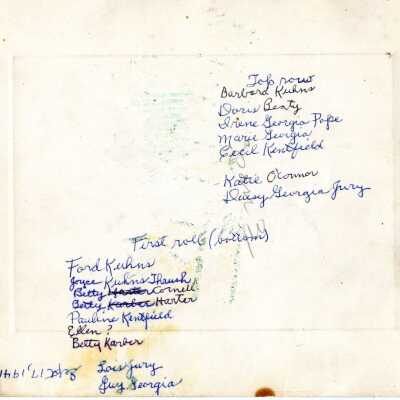 Top row
Barbara Kuhns
Doris Beaty
Irene Georgia Pope
Marie Georgia
Cecil Kentfield
Katie O'Connor
Daisy Georgia Jury
First roll (bottom)
Ford Kuhns
Joyce Kuhns Thrush
Betty Harter Cornell
Betty Karber Harter
Pauline Kentfield
Ellen ?
Betty Karber
Lois Jury
Guy Georgia
Sept 17, 1941